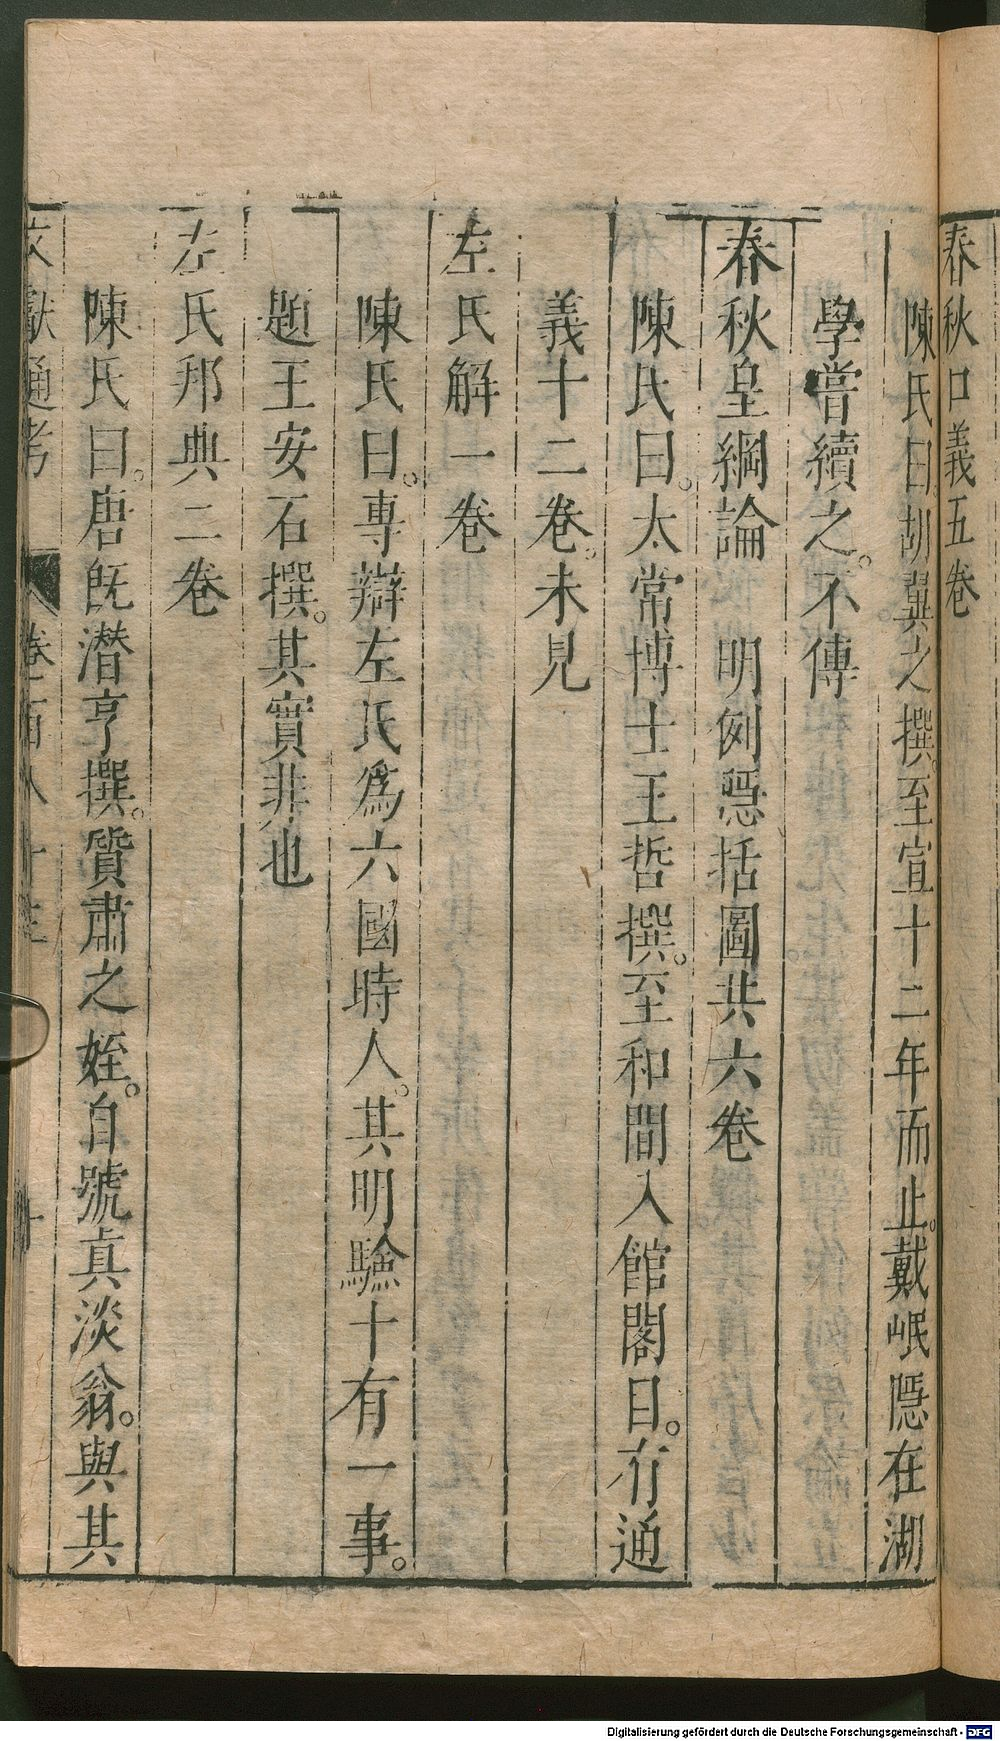 春秋口義五卷
陳氏曰胡翼之撰。至宣十二年而止。戴岷隱在湖
學嘗續之。不傳
春秋皇綱論　明例隱括圖共六卷
陳氏曰。太常博士王哲撰。至和間入館閣目。有通
義十二卷。未見
左氏解一卷
陳氏曰。專辯左氏為六國時人。其明驗十有一事。
題王安石撰。其實非也
左氏邦典二卷
陳氏曰。唐既潛亨撰。質肅之姪。自號真淡翁。與其
文獻通考　卷百八十
Digitalisierung gefördert durch die Deutsche Forschungsgemeinschaft - DFG